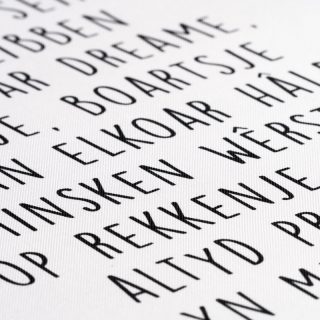 IBBEN
AR DREAME,
JE, BOARTSJE
N ELKOAR HÂL
INSKEN WÊRST
OP REKKENJE
ALTYD PR
YN M